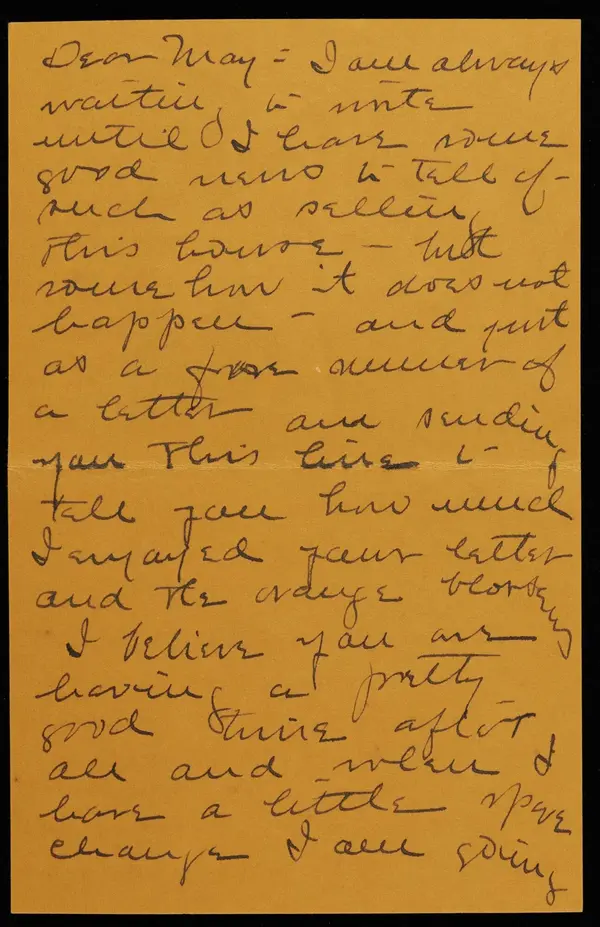 Dear May = I am always
waiting to write
until I have some
good news to tell of -
such as selling
this house - but
somehow it does not
happen - and just
as a fore runner of
a letter am sending
you this line to
tell you how much
I enjoyed your letter
and the orange blossoms
I believe you are
having a pretty
good time after
all and when I
have a little spare
change I am going